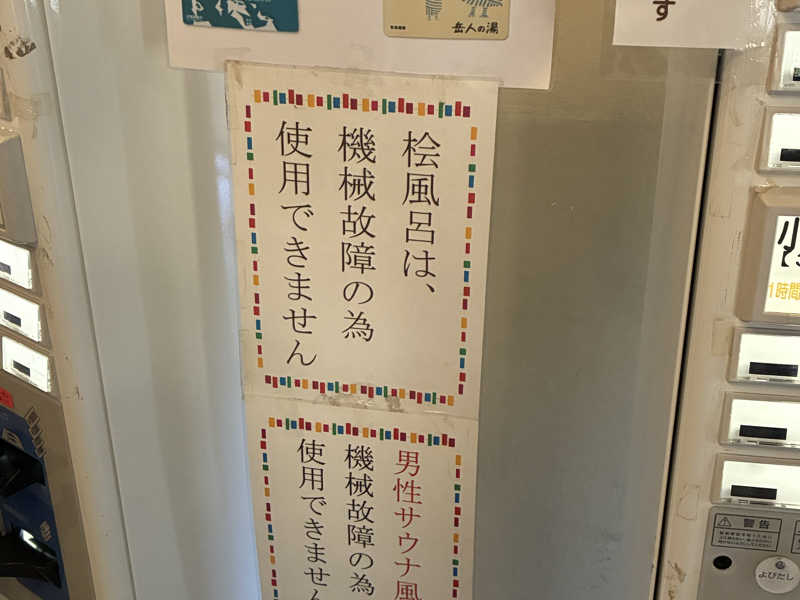 岳人の湯
す
桧風呂は、
機械故障の為
使用できません
男性サウナ風
機械故障の為
使用できません
小
1時間
警告
よびだし